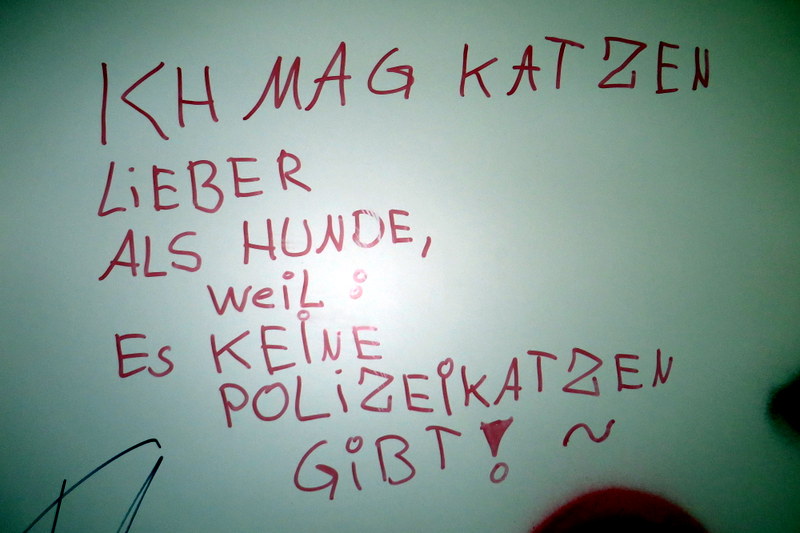 ICH MAG KATZEN
LiEBER
ALS HUNDE,
weiL:
Es KEiNE
POLiZEiKATZEN
GiBT! ~